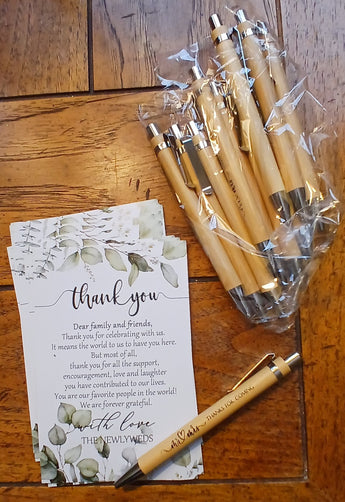 thank you
Dear family and friends,
Thank you for celebrating with us.
It means the world to us to have you here.
But most of all,
thank you for all the support,
encouragement, love and laughter
you have contributed to our lives.
You are our favorite people in the world!
We are forever grateful.
with love
THE NEWLYWEDS
mr & mrs THANKS FOR COMING